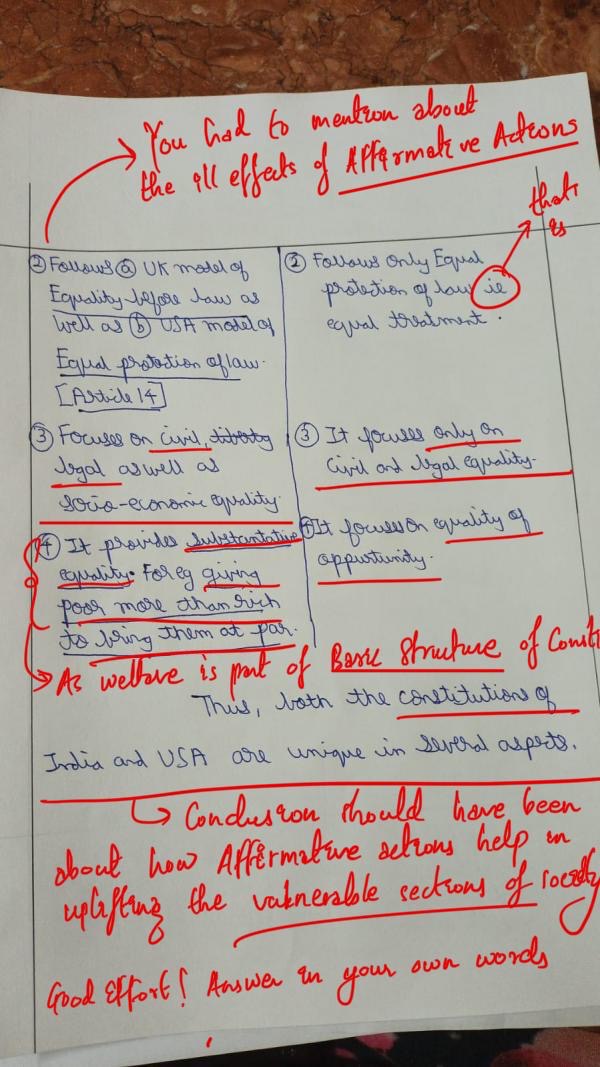 You had to mention about
the ill effects of Affirmative Actions
that
is
② Follows ⓐ UK model of
Equality before law as
well as ⓑ USA model of
Equal protection of law.
[Article 14]
② Follows only Equal
protection of law ie
equal treatment.
③ Focuses on civil, liberty
legal as well as
socio-economic equality.
③ It focuses only on
civil and legal equality.
④ It provides substantative
equality. For eg giving
poor more than rich
to bring them at par.
④ It focuses on equality of
oppurtunity.
As welfare is part of Basic Structure of Consti
Thus, both the constitutions of
India and USA are unique in several aspects.
Conclusion should have been
about how Affirmative actions help in
uplifting the vulnerable sections of society
Good Effort! Answer in your own words